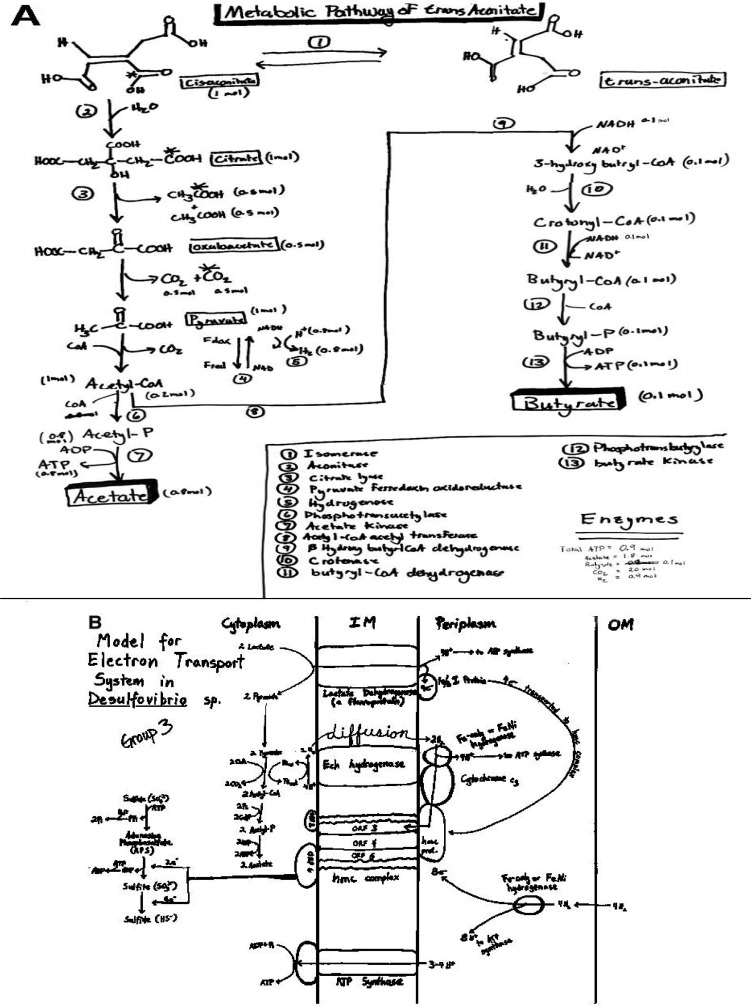 A
Metabolic Pathway of trans Aconitate
H
OH
HO
OH
cisaconitate
(1 mol)
1
H
OH
HO
trans-aconitate
2
H₂O
COOH
HOOC-CH₂-C-CH₂-COOH
OH
Citrate (1mol)
3
CH₃COOH (0.5mol)
+
CH₃COOH (0.5mol)
HOOC-CH₂-C-COOH
oxaloacetate (0.5mol)
CO₂ + CO₂
0.5mol 0.5mol
H₃C-C-COOH
Pyruvate (1mol)
CoA
CO₂
Fdox
Fred
NADH
NAD
4
H⁺ (0.8mol)
H₂ (0.8mol)
5
(1mol)
Acetyl-CoA
(0.2mol)
CoA
6
8
Acetyl-P
ADP
ATP
(0.8mol)
7
Acetate (0.8mol)
9
NADH 0.1 mol
NAD⁺
3-hydroxy butryl-CoA (0.1mol)
H₂O
10
Crotonyl-CoA (0.1mol)
11
NADH 0.1mol
NAD⁺
Butyryl-CoA (0.1mol)
12
CoA
Butyryl-P (0.1mol)
13
ADP
ATP (0.1mol)
Butyrate (0.1mol)
1 Isomerase
2 Aconitase
3 Citrate lyase
4 Pyruvate Ferredoxin oxidoreductase
5 Hydrogenase
6 Phosphotransacetylase
7 Acetate Kinase
8 Acetyl-CoA acetyl transferase
9 β Hydroxy butyrlCoA dehydrogenase
10 Crotenase
11 butyryl-CoA dehydrogenase
12 Phosphotransbutyrylase
13 butyrate Kinase
Enzymes
Total ATP = 0.9 mol
Acetate = 1.8 mol
Butyrate = 0.1 mol
CO₂ = 2.0 mol
H₂ = 0.9 mol
B
Model for
Electron Transport
System in
Desulfovibrio sp.
Group 3
Cytoplasm
IM
Periplasm
OM
2 Lactate
Lactate Dehydrogenase
(a flavoprotein)
to ATP synthase
4e⁻ transported to hmc complex
2 Pyruvate
diffusion
2H₂
Fe-only or FeNi
hydrogenase
2 Pyruvate
Ech hydrogenase
4H⁺
to ATP synthase
Cytochrome c₃
2CO₂
2 Acetyl-CoA
2 Acetyl-P
2 Acetate
ORF 3
ORF 4
ORF 5
hmc
hmc complex
Sulfate (SO₄²⁻)
ATP
PPi
Adenosine
Phosphosulfate
(APS)
2e⁻
Sulfite (SO₃²⁻)
6e⁻
Sulfide (HS⁻)
8e⁻
Fe-only or FeNi
hydrogenase
4H₂
4H₂
8H⁺
to ATP
synthase
ADP+Pi
ATP
ATP Synthase
3-4 H⁺